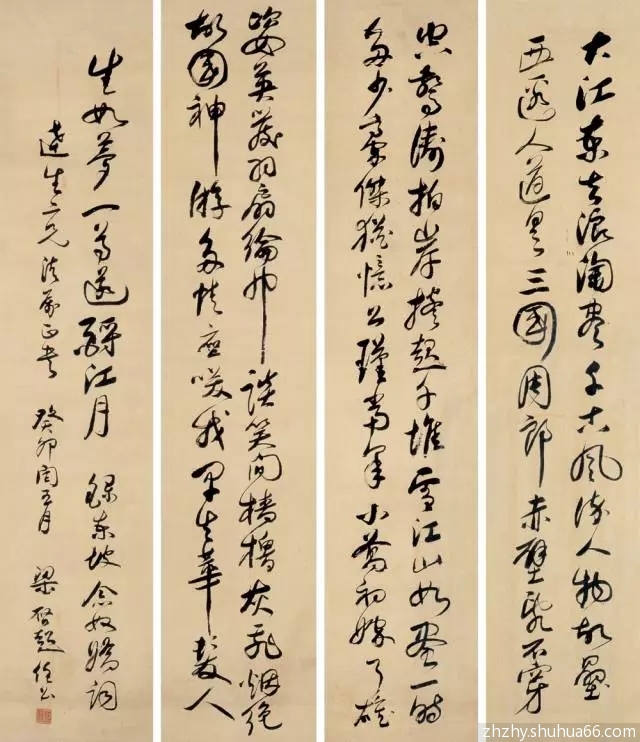 大江東去浪淘盡千古風流人物故壘
西邊人道是三國周郎赤壁亂石穿
空驚濤拍岸捲起千堆雪江山如畫一時
多少豪傑猶憶公瑾當年小喬初嫁了雄
姿英發羽扇綸巾談笑間檣櫓灰飛烟絕
故國神游多情應笑我早生華髮人
生如夢一尊還酹江月 錄東坡念奴嬌詞
生二兄法家正書 癸卯閏五月 梁啓超任公
zhzhy.shuhua66.com